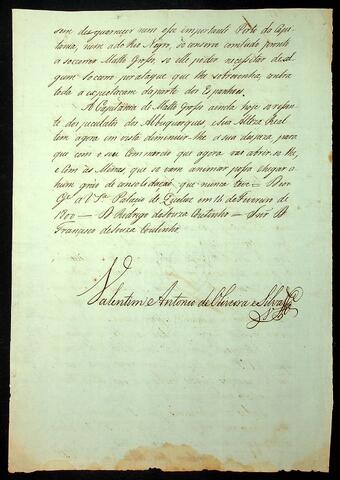 sem desguarnecer num esse importante Porto da Capi-
tania, nem a do Rio Negro, se conserve comtudo prompto
a soccorrer Matto Grosso, se elle poder necessitar de al-
gum Socorro por ataque que lhe sobrevenha, contra
toda a expectaçaõ da parte dos Espanhoes.
A Capitania de Matto Grosso ainda hoje se resente
dos peculatos dos Albuquerques, e Sua Alteza Real
tem agora em vista diminuir-lhe a sua despeza, para
que com o seu Commercio que agora vai abrir-se-lhe,
e com as Minas que se vam animar possa chegar a
hum gráo de consolidaçaõ que nunca teve = Deos
Gde a V. Sa Palacio de Queluz em 14 de Fevereiro de
1800 = D. Rodrigo de Souza Coutinho = Snr. D.
Francisco de Souza Coutinho.
Valentim Antonio de Oliveira e Silva